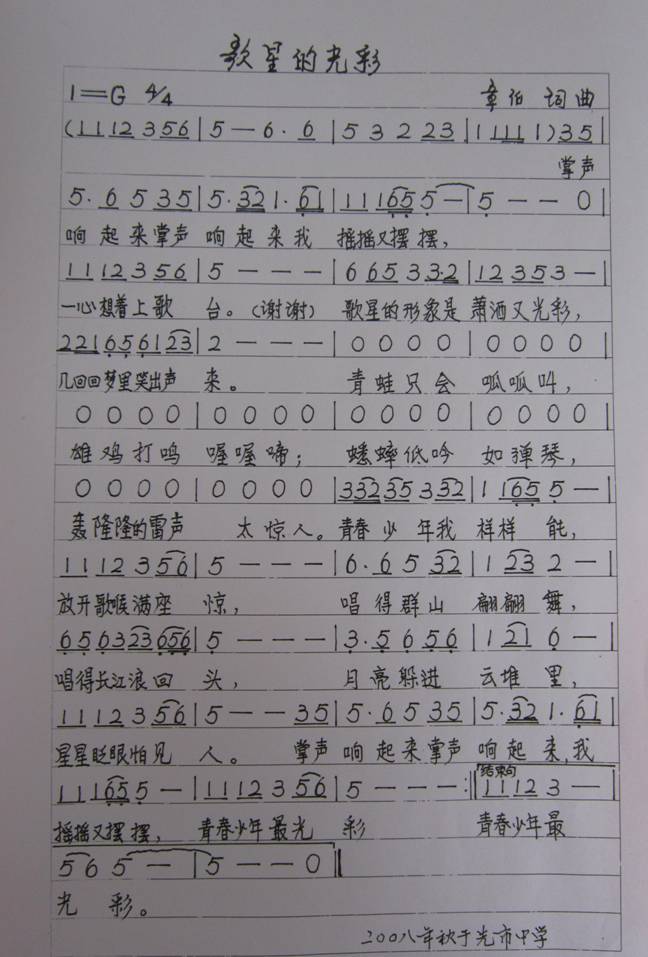 歌星的光彩
1=G 4/4 章伯 词曲
(1 1 1 2 3 5 6 | 5 — 6 · 6 | 5 3 2 2 3 | 1 1 1 1 1) 3 5 |
掌声
5 · 6 5 3 5 | 5 · 3 2 1 · 6 1 | 1 1 1 6 5 5 — | 5 — — 0 |
响起来掌声 响起来我 摇摇又摆摆,
1 1 1 2 3 5 6 | 5 — — — | 6 6 5 3 3 · 2 | 1 2 3 5 3 — |
一心想着上歌 台。(谢谢) 歌星的形象是 萧洒又光彩,
2 2 1 6 5 6 1 2 3 | 2 — — — | 0 0 0 0 | 0 0 0 0 |
几回回梦里笑出声 来。 青蛙只会 呱呱叫,
0 0 0 0 | 0 0 0 0 | 0 0 0 0 | 0 0 0 0 |
雄鸡打鸣 喔喔啼; 蟋蟀低吟 如弹琴,
0 0 0 0 | 0 0 0 0 | 3 3 2 3 5 3 3 2 | 1 1 6 5 5 — |
轰隆隆的雷声 太惊人。青春少年我 样样能,
1 1 1 2 3 5 6 | 5 — — — | 6 · 6 5 3 2 | 1 2 3 2 — |
放开歌喉满座 惊, 唱得群山 翩翩舞,
6 5 6 3 2 3 6 5 6 | 5 — — — | 3 · 5 6 5 6 | 1 2 1 6 — |
唱得长江浪回 头, 月亮躲进 云堆里,
1 1 1 2 3 5 6 | 5 — — 3 5 | 5 · 6 5 3 5 | 5 · 3 2 1 · 6 1 |
星星眨眼怕见 人。 掌声响起来掌声 响起来,我
结束句
1 1 1 6 5 5 — | 1 1 1 2 3 5 6 | 5 — — — :‖ 1 1 1 2 3 — |
摇摇又摆摆, 青春少年最光 彩 青春少年最
5 6 5 — | 5 — — 0 ‖
光 彩。
二00八年秋于光市中学